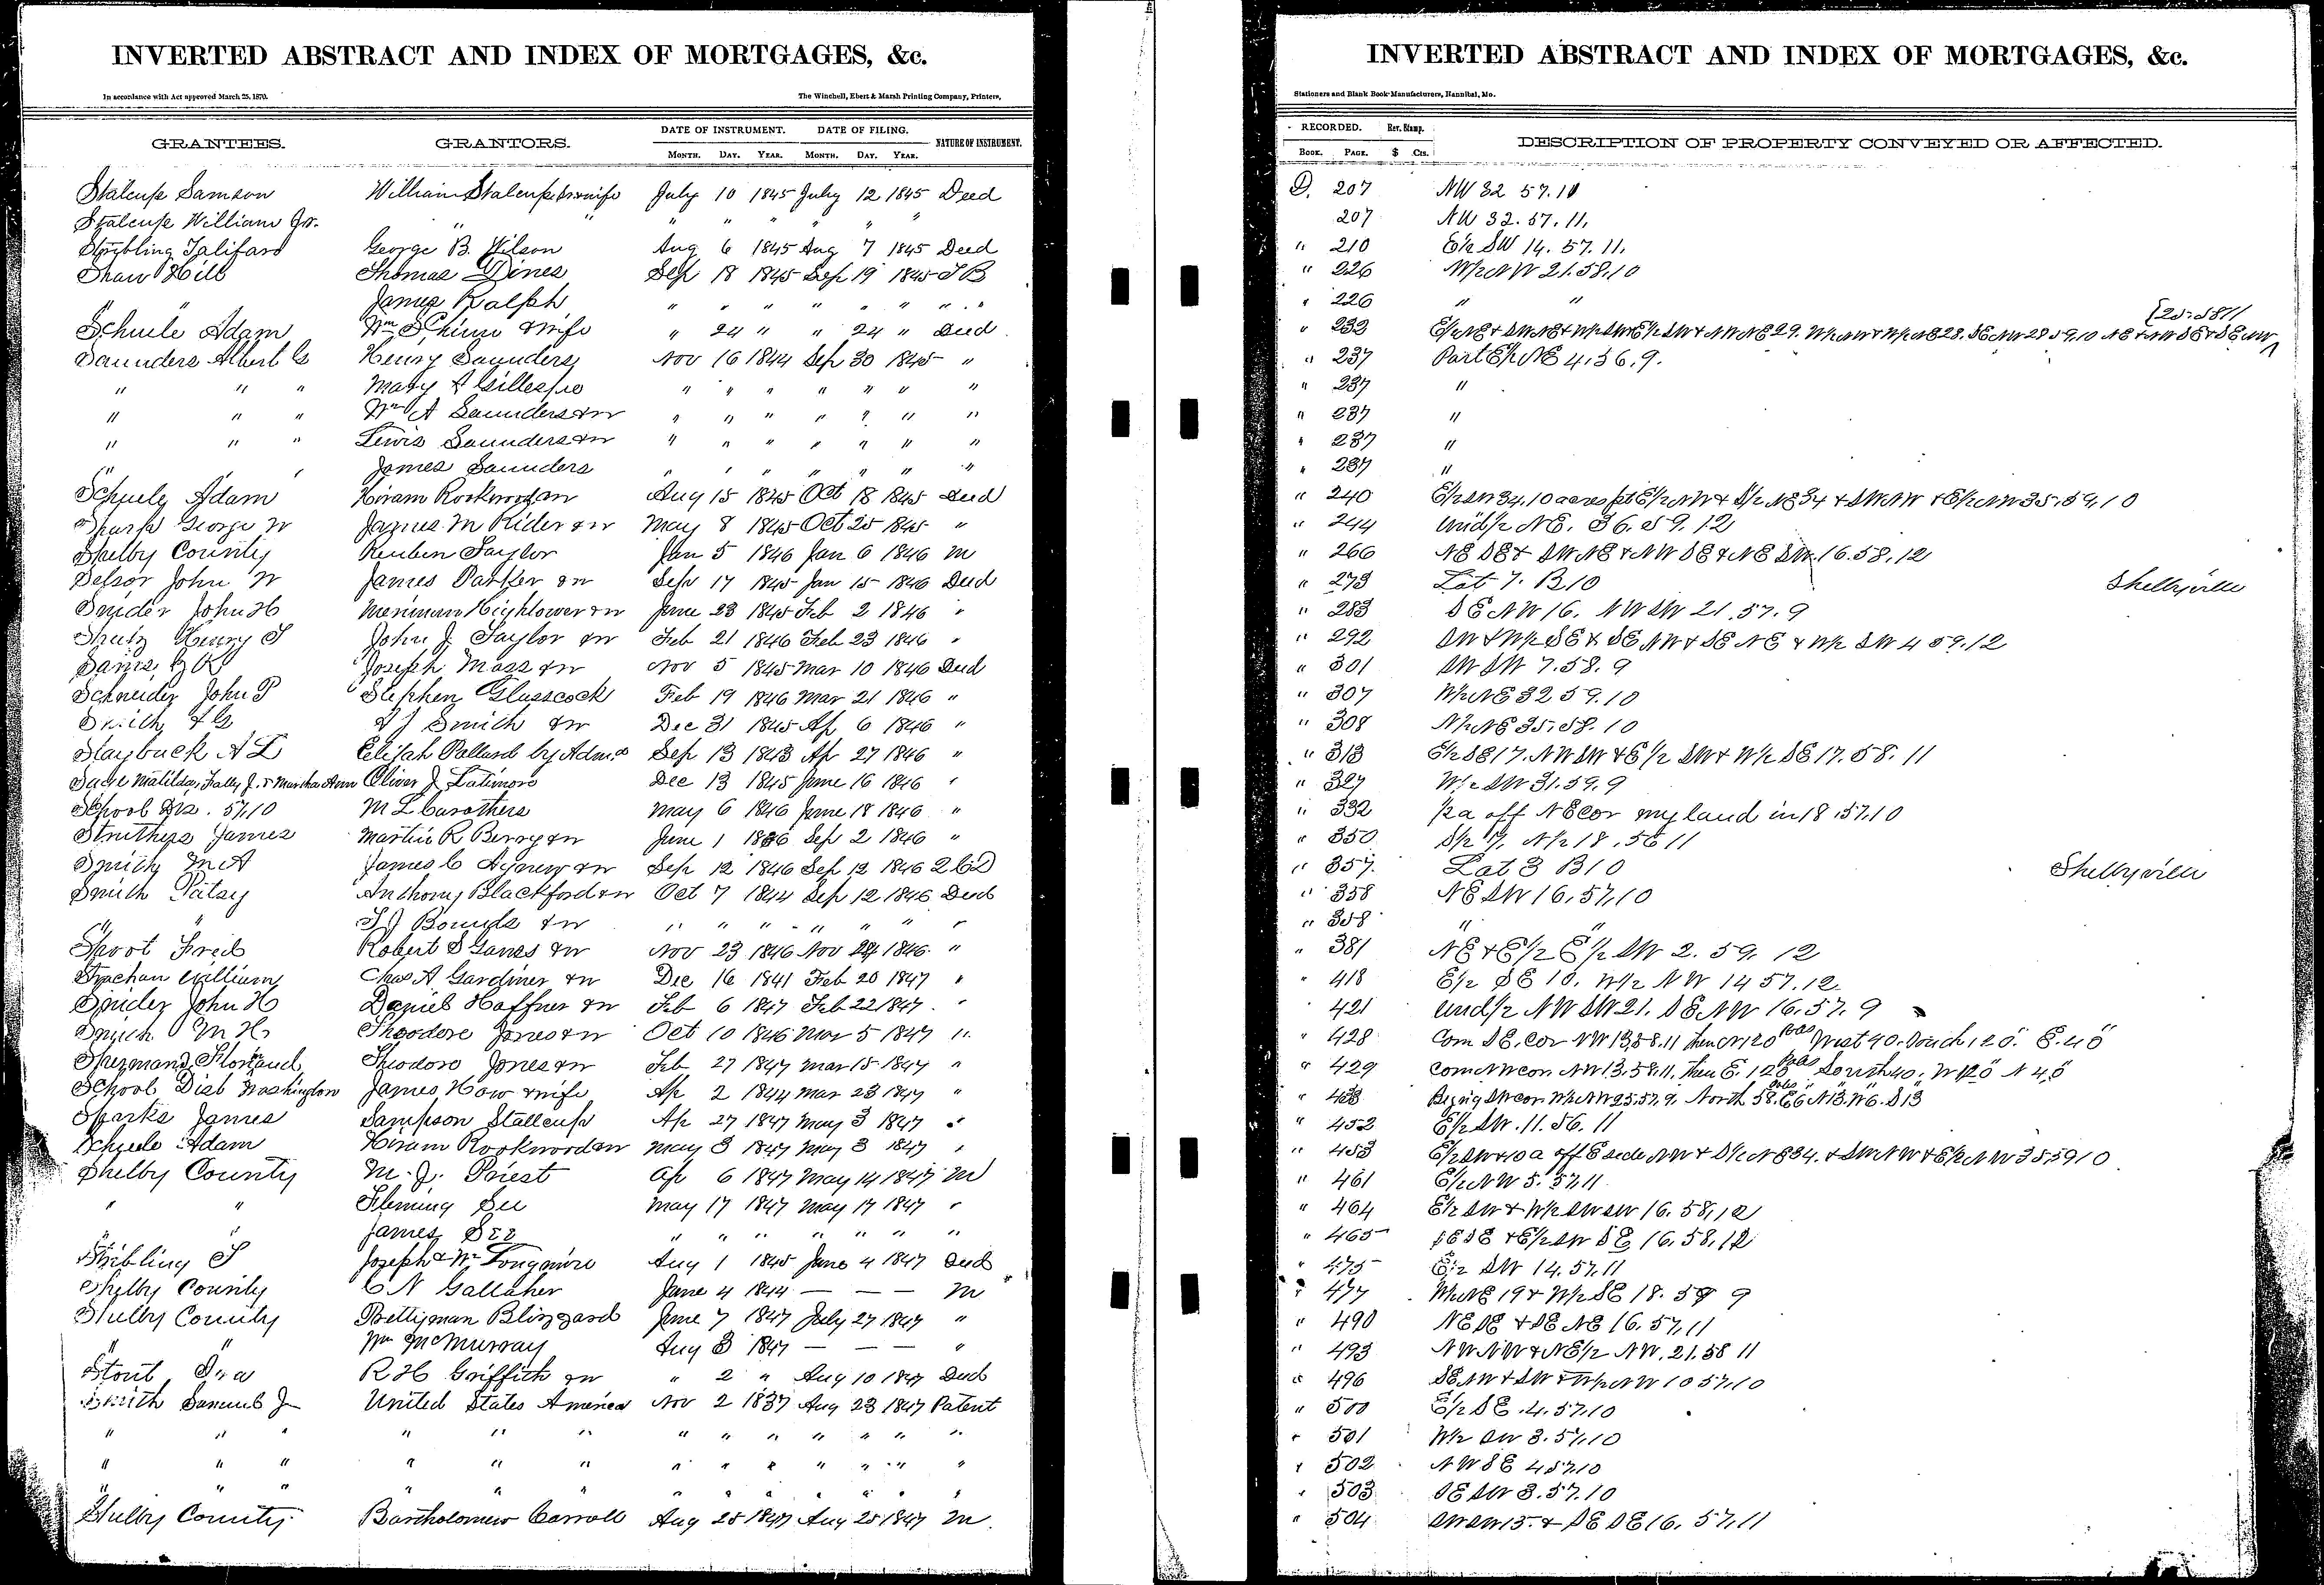 INVERTED ABSTRACT AND INDEX OF MORTGAGES, &c.
In accordance with Act approved March 25, 1870. The Winchell, Ebert & Marsh Printing Company, Printers,
GRANTEES. GRANTORS. DATE OF INSTRUMENT. DATE OF FILING. NATURE OF INSTRUMENT.
MONTH. DAY. YEAR. MONTH. DAY. YEAR.
Stalcup Samson William Stalcup & wife July 10 1845 July 12 1845 Deed
Stalcup William Jr. " " " " " "
Stribling Talifaro George B. Wilson Aug 6 1845 Aug 7 1845 Deed
Shaw Hill Thomas Dines Sep 18 1845 Sep 19 1845 T B
" James Ralph " " " " " " " "
Schuele Adam Wm & wife " 24 " " 24 " Deed
Saunders Albert G Henry Saunders Nov 16 1844 Sep 30 1845 "
" " " Mary A Gillespie " " " " " " "
" " " Wm A Saunders & w " " " " " " "
" " " Lewis Saunders & w " " " " " " "
" " " James Saunders " " " " " " "
Schuely Adam Hiram Rookwood & w Aug 15 1845 Oct 18 1845 Deed
Sharp George W James M Rider & w May 8 1845 Oct 25 1845 "
Shelby County Reuben Taylor Jan 5 1846 Jan 6 1846 M
Selsor John W James Parker & w Sep 17 1845 Jan 15 1846 Deed
Snider John H Merriman Hightower & w June 23 1845 Feb 2 1846 "
Sheetz Henry S John J Taylor & w Feb 21 1846 Feb 23 1846 "
Sams, Joseph Mass & w Nov 5 1845 Mar 10 1846 Deed
Schneider John P Stephen Glasscock Feb 19 1846 Mar 21 1846 "
Smith, A G A J Smith & w Dec 31 1845 Ap 6 1846 "
Slaybuck A L Elijah Pollard by Adm Sep 13 1843 Ap 27 1846 "
Matilda, J. & Martha Ann Oliver J Latimore Dec 13 1845 June 16 1846 "
School Dis. 57.10 M L Carothers May 6 1846 June 18 1846 "
Struthers James Martin R Berry & w June 1 1846 Sep 2 1846 "
Smith M A James C Agnew & w Sep 12 1846 Sep 12 1846 2 C D
Smith Patsy Anthony Blackford & w Oct 7 1844 Sep 12 1846 Deed
" " T J Bounds & w " " " " " " "
Shoot Fred Robert S Gans & w Nov 23 1846 Nov 24 1846 "
Strachan William Chas A Gardiner & w Dec 16 1841 Feb 20 1847 "
Snider John H Daniel Haffner & w Feb 6 1847 Feb 22 1847 "
Smith M H. Theodore Jones & w Oct 10 1846 Mar 5 1847 "
Theodore Jones & w Feb 27 1847 Mar 15 1847 "
School Dist Washington James How & wife Ap 2 1844 Mar 23 1847 "
Sparks James Sampson Stallcup Ap 27 1847 May 3 1847 "
Schuele Adam Hiram Rookwood & w May 3 1847 May 3 1847 "
Shelby County M. J. Priest Ap 6 1847 May 14 1847 M
" " Fleming See May 17 1847 May 17 1847 "
" " James See " " " " " " "
Stribling T Joseph & Wm Longmire Aug 1 1845 June 4 1847 Deed
Shelby County C N Gallaher June 4 1844 — — — M
Shelby County Prettyman Blizzard June 7 1847 July 27 1847 "
" " Wm McMurray Aug 3 1847 — — — "
Stout Ira R H Griffith & w " 2 " Aug 10 1847 Deed
Smith Samuel J United States America Nov 2 1837 Aug 23 1847 Patent
" " " " " " " " " " " " "
" " " " " " " " " " " " "
" " " " " " " " " " " " "
Shelby County Bartholomew Carroll Aug 25 1847 Aug 25 1847 M.
INVERTED ABSTRACT AND INDEX OF MORTGAGES, &c.
Stationers and Blank Book Manufacturers, Hannibal, Mo.
RECORDED. Rev. Stamp. DESCRIPTION OF PROPERTY CONVEYED OR AFFECTED.
BOOK. PAGE. $ Cts.
D. 207 NW 32 57.10
207 NW 32. 57. 11.
" 210 E½ SW 14. 57. 11.
" 226 W½ NW 21.58.10
" 226 " "
{25.58 11
" 232 E½ NE & SW NE & W½ SW & E½ SW & NW NE 29. W½ NW & W½ NE 28. SE NW 28 59.10 NE & NW SE & SE NW
" 237 Part E½ NE 4.56.9.
" 237 "
" 237 "
" 237 "
" 237 "
" 240 E½ SW 34. 10 acres pt E½ NW & S½ NE 34 & SW NW & E½ NW 35.59.10
" 244 und½ NE. 36.59.12
" 266 NE SE & SW NE & NW SE & NE SW. 16.58.12
" 273 Lot 7. B 10 Shelbyville
" 283 SE NW 16. NW SW 21.57.9
" 292 SW & W½ SE & SE NW & SE NE & W½ SW 4 59.12
" 301 SW SW 7.58.9
" 307 W½ NE 32 59.10
" 308 N½ NE 35.58.10
" 313 E½ SE 17. NW SW & E½ SW & W½ SE 17.58.11
" 327 W½ SW 31.59.9
" 332 ½ a off NE cor my land in 18.57.10
" 350 S½ 7, N½ 18.56 11
" 357. Lot 3 B 10 Shelbyville
" 358 NE SW 16.57.10
" 358 " "
" 381 NE & E½ E½ SW 2. 59. 12
" 418 E½ SE 10. W½ NW 14 57.12.
" 421 und½ NW SW 21. SE NW 16.57.9
" 428 Com SE. cor NW 13.58.11 then N 120 pos West 40. South 120. E. 40
" 429 Com NW cor. NW 13.58.11. then E. 120 poles South 40. W 120 N 40
" 433 Being SW cor. W½ NW 25.57.9. North 58. E 6 N 13. W 6. S 13
" 452 E½ SW. 11. 56. 11
" 453 E½ SW & 10 a off E side NW & S½ NE 34. & SW NW & E½ NW 35 59 10
" 461 E½ NW 5. 57.11
" 464 E½ SW & W½ SW SW 16. 58,12
" 465 SE SE & E½ SW SE 16.58.12
" 475 E½ SW 14.57.11
" 477 W½ NE 19 & W½ SE 18. 57 9
" 490 NE SE & SE NE 16. 57.11
" 493 NW NW & NE½ NW. 21.58 11
" 496 SE NW & SW & W½ NW 10 57.10
" 500 E½ SE. 4.57.10
" 501 W½ SW 3.57.10
" 502 NW SE 4 57.10
" 503 SE SW 3.57.10
" 504 SW SW 15. & SE SE 16. 57.11